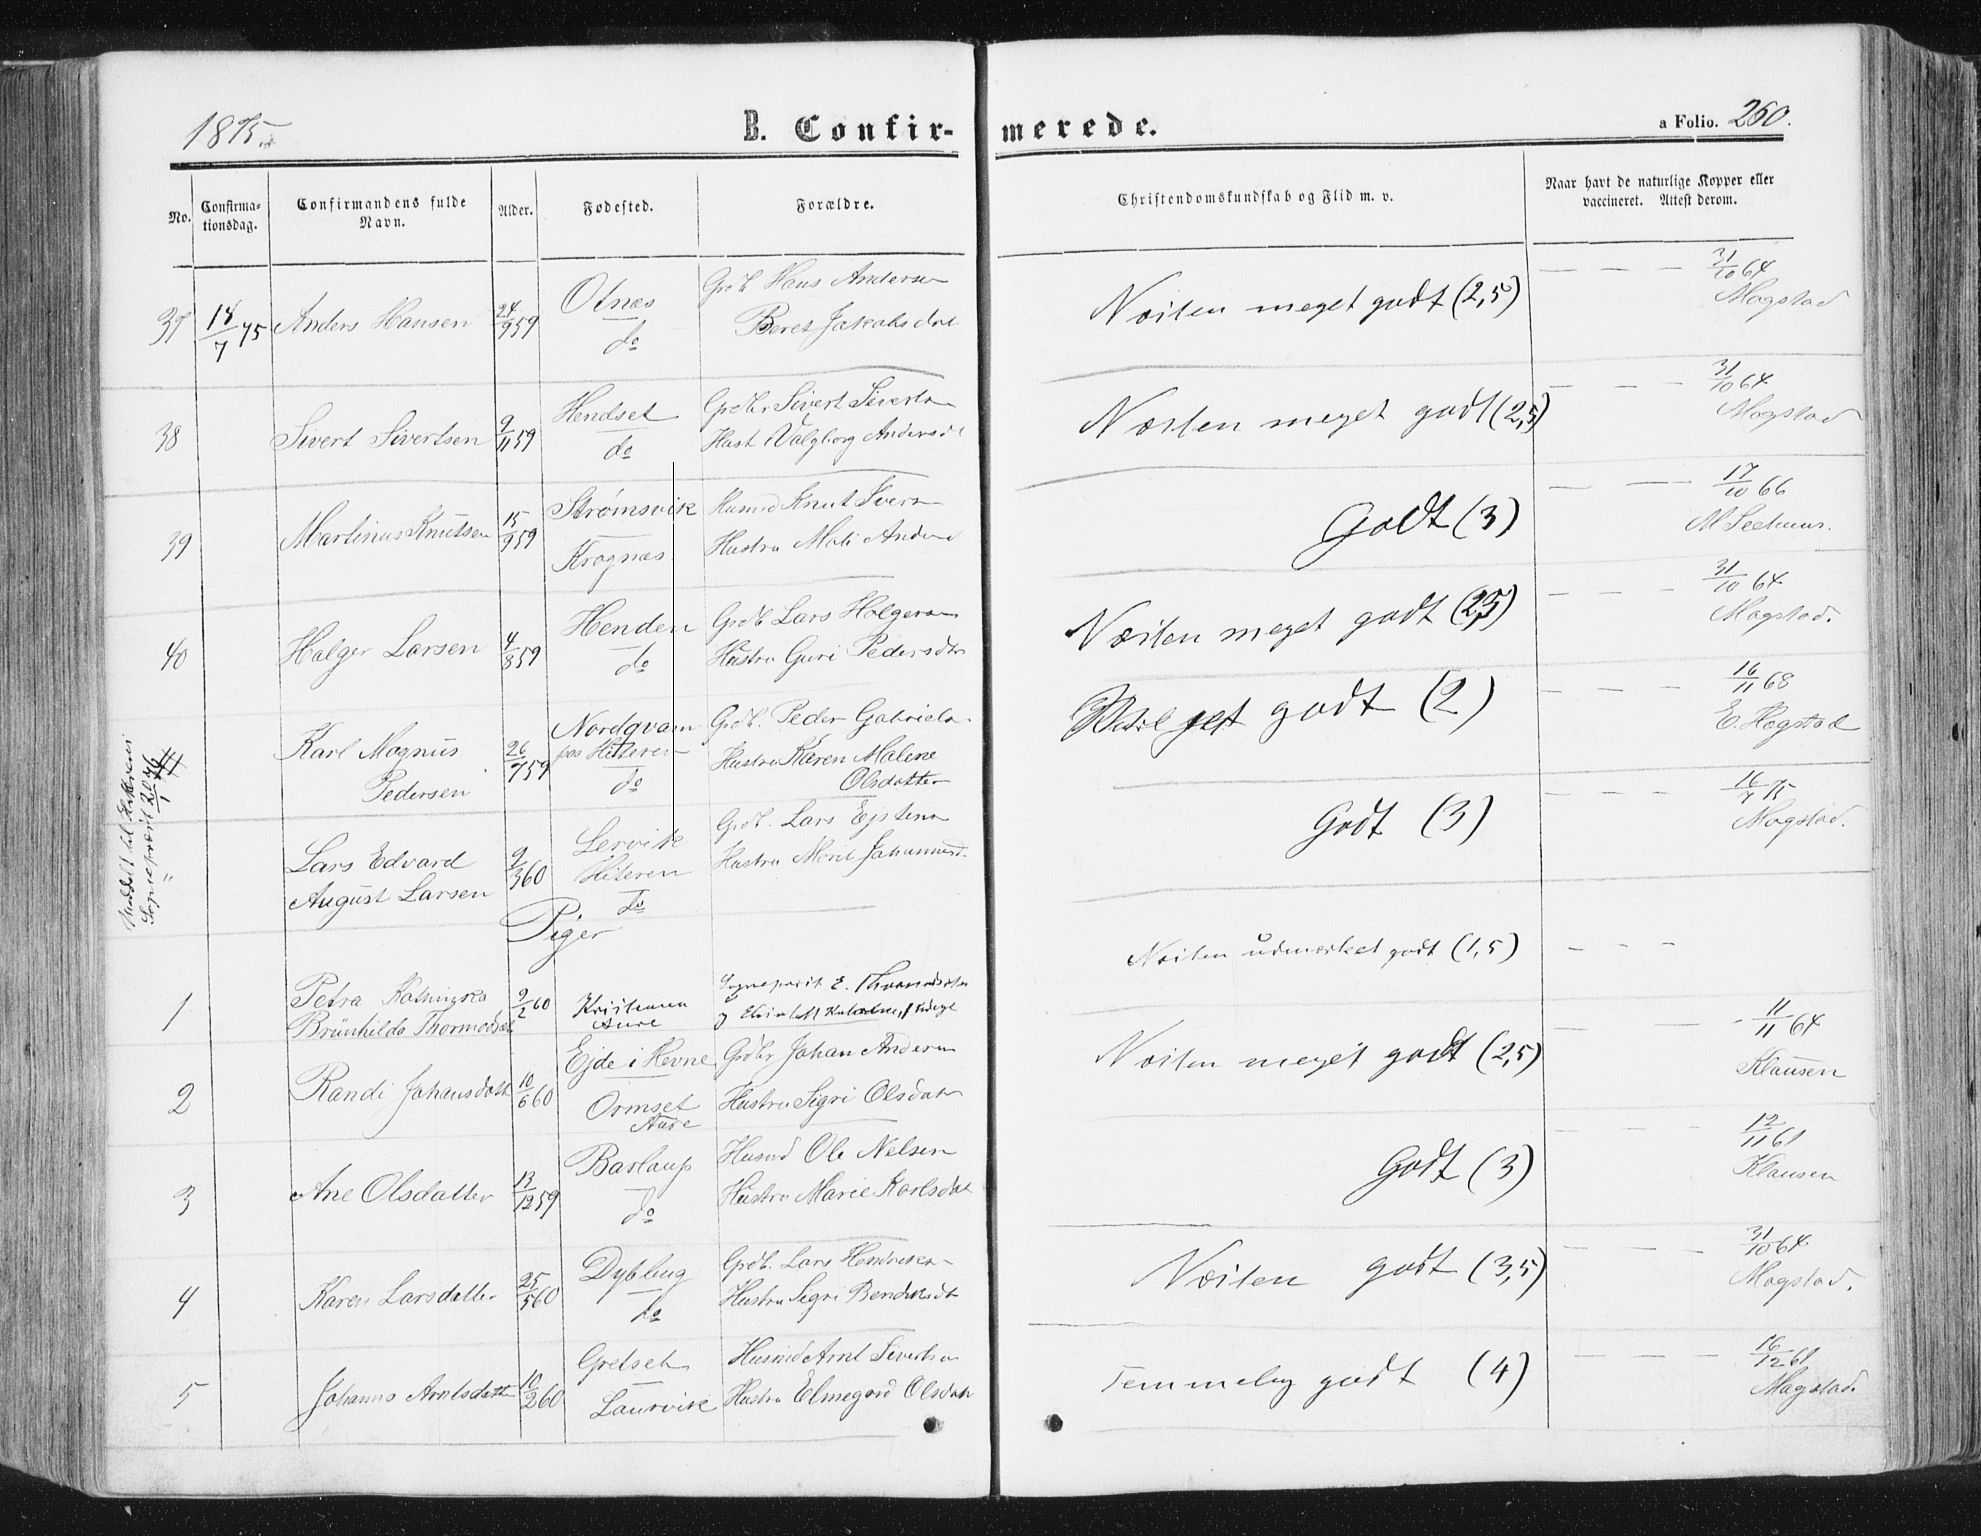 1875.
B. Confir-merede.
a Folio. 260.
No.
Confirma-
tionsdag.
Confirmandens fulde
Navn.
Alder.
Fødested.
Forældre.
Christendomskundskab og Flid m. v.
Naar havt de naturlige Kopper eller
vaccineret. Attest derom.
37 18/7 75 Anders Hansen 24/9 59 Otnes do Grdb Hans Andersen
Beret Jakobsdat
Næsten meget godt (2,5) — — — 31/10 64
Mogstad
38 Sivert Sivertsen 9/11 59 Hendset do Grdbr Sivert Siverts
Hust Valgborg Andersd
Næsten meget godt (2,5) — — — 31/10 64
Mogstad
39 Martinus Knutsen 15/9 59 Strømsvik
Krognæs
Husmd Knut Ivers
Hustru Mali Anders
Godt (3) — — 17/10 66
M Seehuus.
40 Holger Larsen 4/8 59 Henden do Grdb Lars Holgers
Hustru Guri Pedersdtr
Næsten meget godt (2,5) — — — 31/10 64
Mogstad.
41 Karl Magnus
Pedersen
26/7 59 Nordqvam
paa Hiteren
do
Grdb. Peder Gabriels
Hustru Karen Malene
Olsdatter
Meget godt (2) — — — 16/11 68
E. Hogstad
Meddelt til Hitteren
Sognepræst 20/1 76
" Lars Edvard
August Larsen
9/3 60 Lervik
Hiteren
do
Grdb. Lars Ejstens
Hustru Merit Johannesd.
Godt (3) — — — 16/7 75
Mogstad.
Piger
1 Petra
Brünhilda Thormodsæt
9/2 60
Aure
Sognepræst E. Thormodsæter
Næsten udmærket godt (1,5) — — —
2 Randi Johansdatt 10/6 60 Ejde i Hevne
Ormset
Aure
Grdbr Johan Anders
Hustru Sigri Olsdatr
Næsten meget godt (2,5) — — - 11/11 64
Klausen
3 Ane Olsdatter 13/12 59 Barlaup
do
Husmd Ole Nelsen
Hustru Marie Karlsdat
Godt (3) — — — 12/11 61
Klausen
4 Karen Larsdatter 25/5 60
do
Grdb. Lars Hendriks
Hustru Sigri Bendiksdt
Næsten godt (3,5) — — — 31/10 64
Mogstad.
5 Johanna Arntsdatt 10/2 60 Gretset
Laurvik
Husmd Arnt Siverts
Hustru Elmegard Olsdatr
Temmelig godt (4) — — — 16/12 61
Magstad.